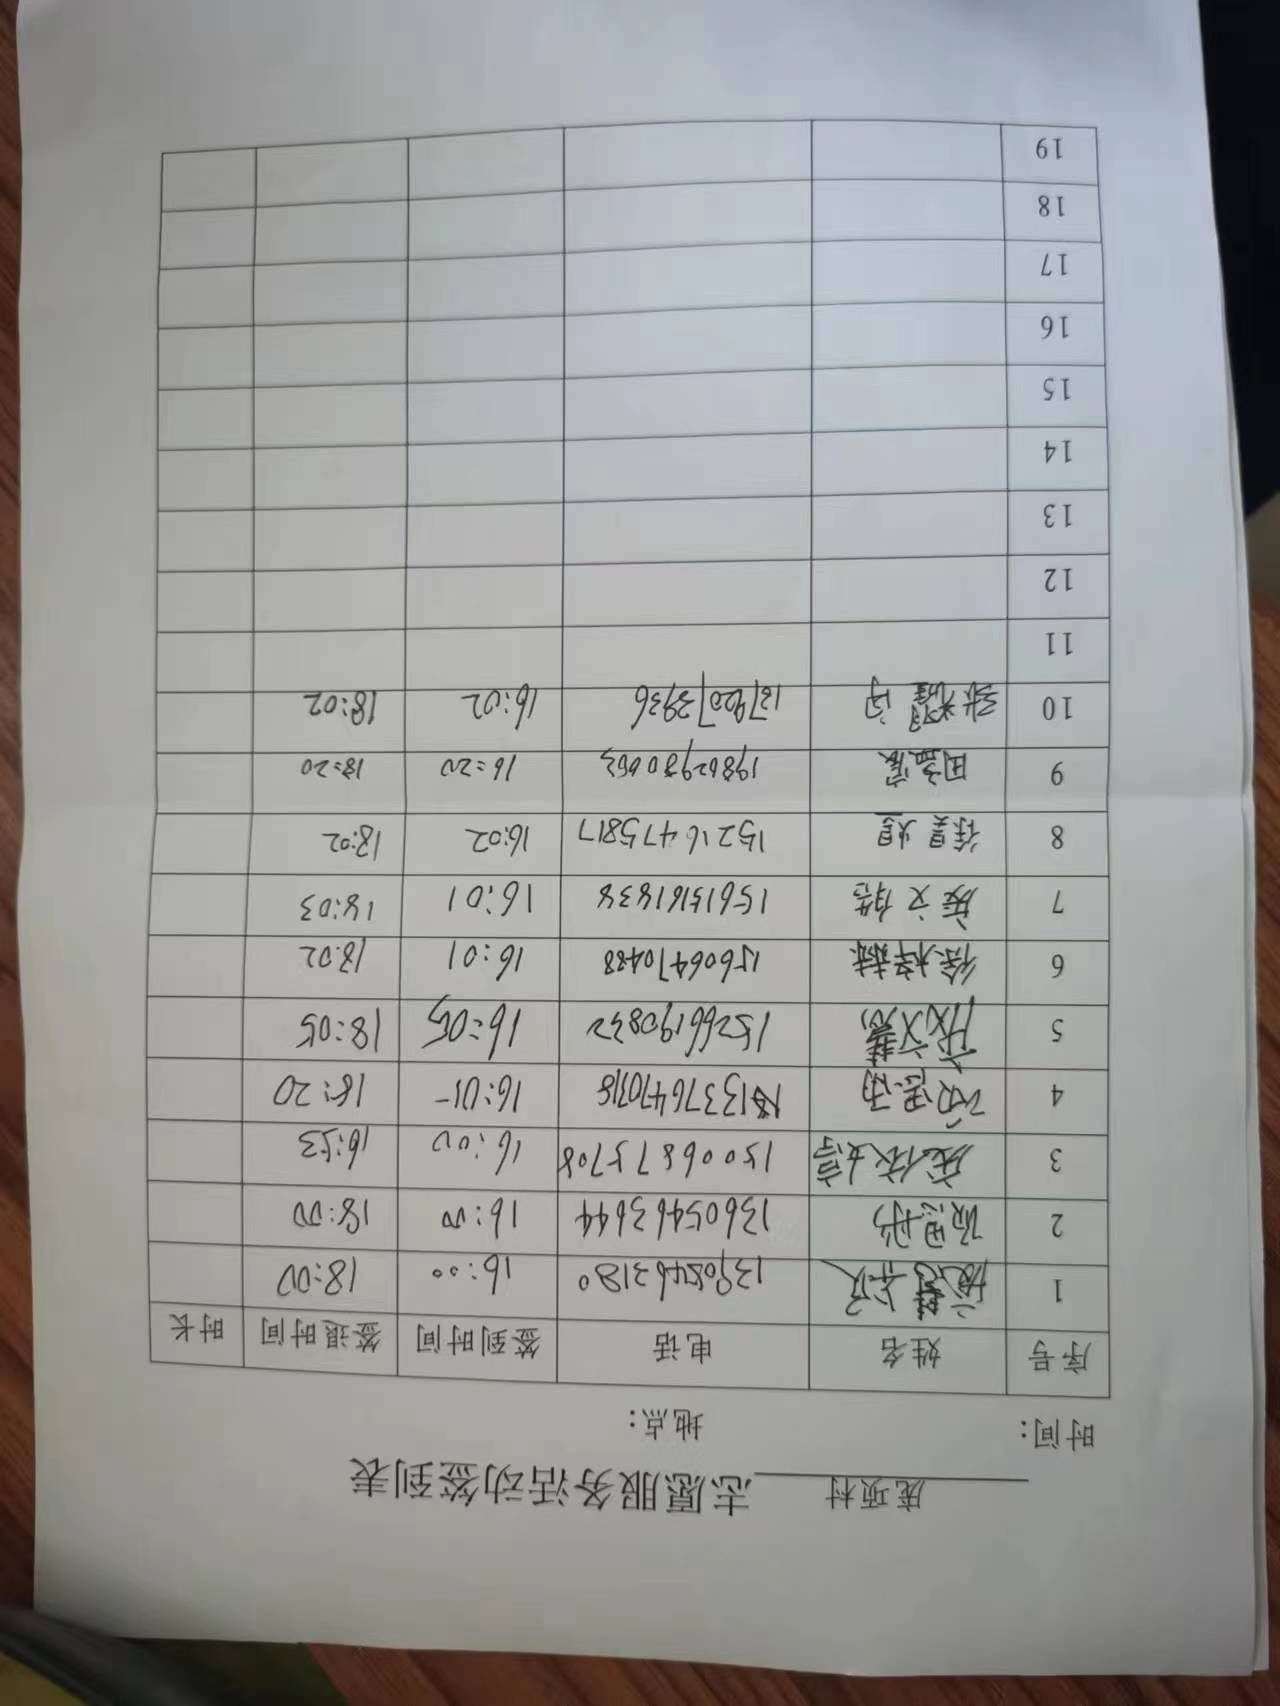 庞项村 志愿服务活动签到表
时间： 地点：
序号 姓名 电话 签到时间 签退时间 时长
1 13905463180 16:00 18:00
2 13605463644 16:00 18:00
3 15006875708 16:00 16:53
4 13376470318 16:01 18:20
5 15266190832 16:05 18:05
6 徐梓赫 15606470488 16:01 18:02
7 庞文倩 15615161838 16:01 18:03
8 徐昊煜 15216475817 16:02 18:02
9 田益宸 19862980663 16:20 18:20
10 13792073936 16:02 18:02
11
12
13
14
15
16
17
18
19